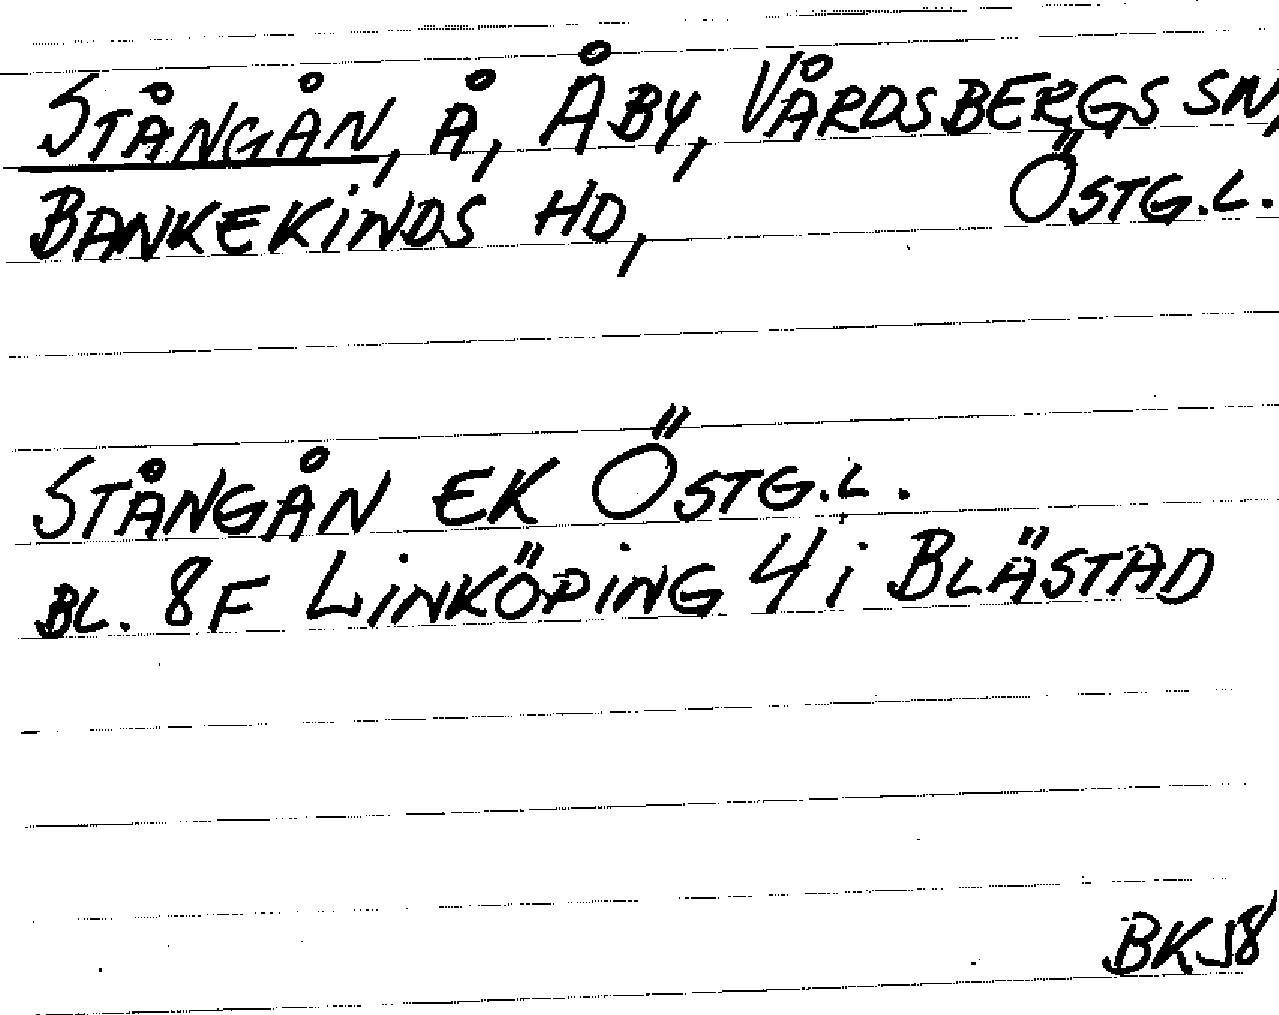 STÅNGÅN, Å, ÅBY, VÅRDSBERGS SN,
BANKEKINDS HD, ÖSTG.L.
STÅNGÅN EK ÖSTG.L.
BL. 8F LINKÖPING 4i BLÄSTAD